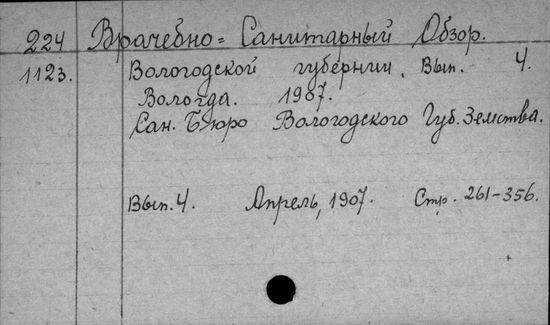 224 Врачебно= Санитарный Обзор.
1123. Вологодской губернии. Вып. 4.
Вологда. 1907.
Сан. Бюро Вологодского Губ. Земства.
Вып. 4. Апрель, 1907. Стр. 261-356.